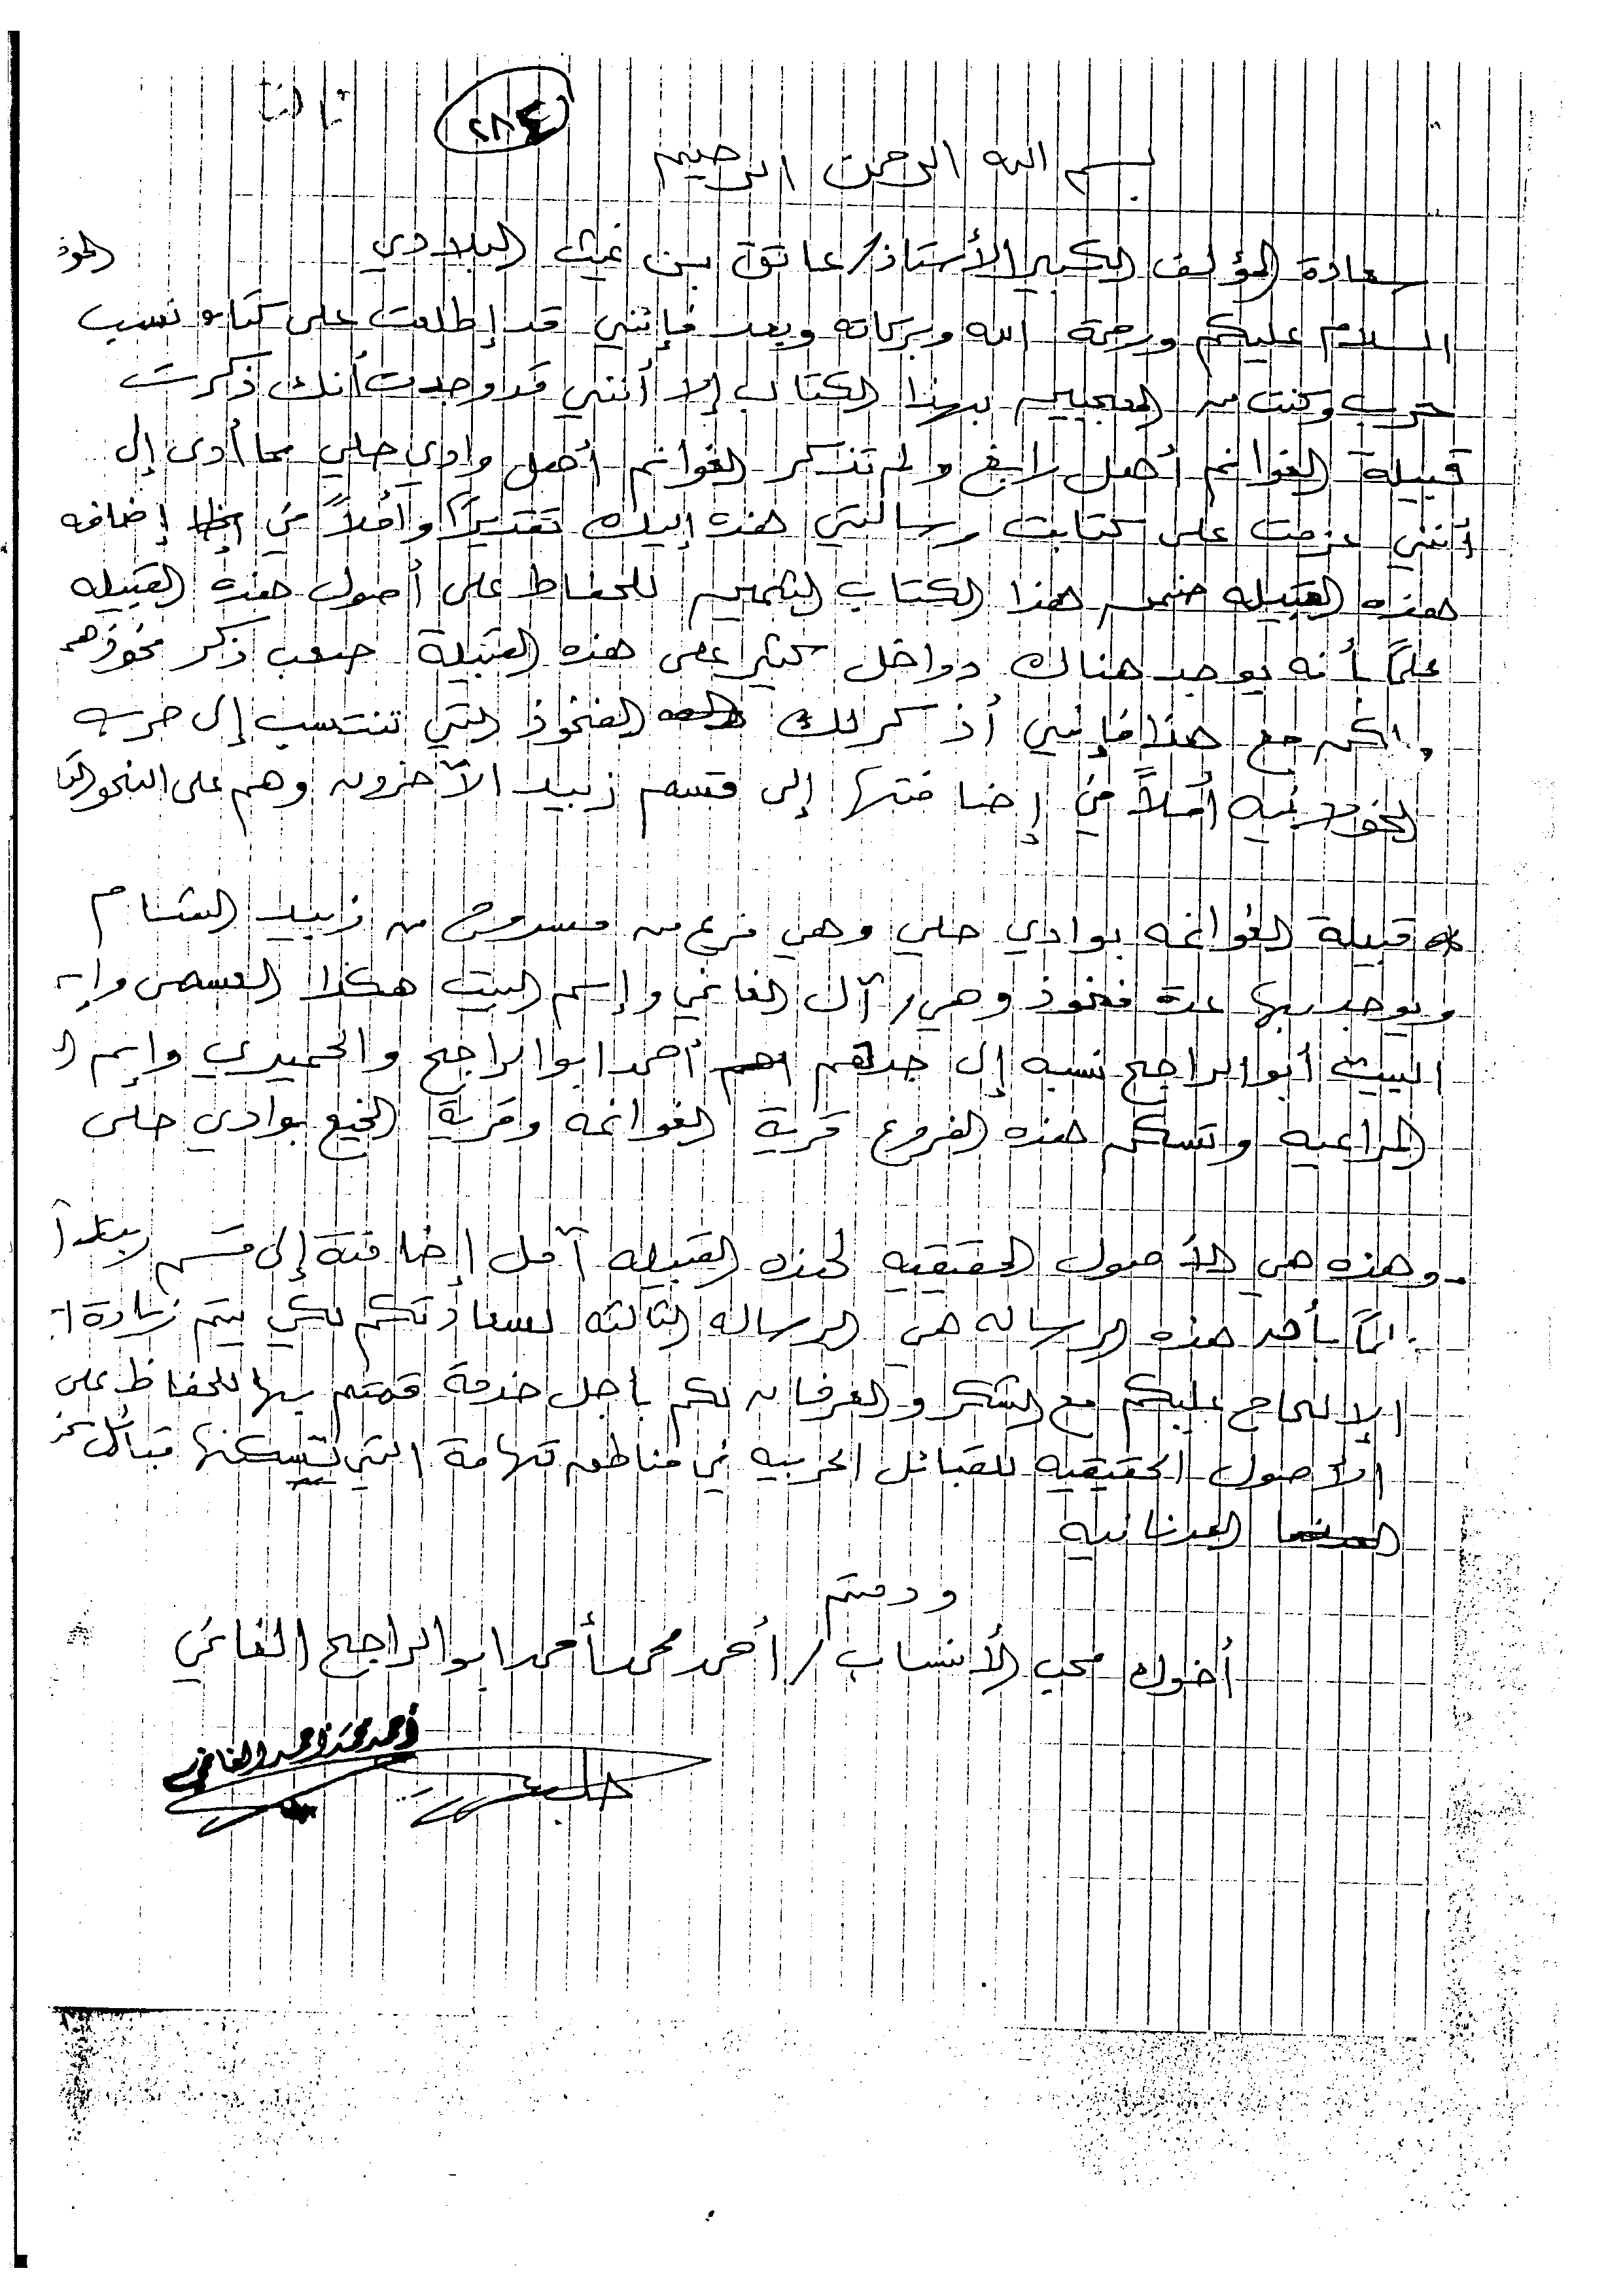 ٢٨٤
بسم الله الرحمن الرحيم
سعادة المؤلف الكبير الأستاذ / عاتق بن غيث البلادي
السلام عليكم ورحمة الله وبركاته وبعد فإنني قد إطلعت على كتاب نسب
حرب وكنت من المعجبين بهذا الكتاب إلا أنني قد وجدت أنك ذكرت
قبيلة الغوانم أهل رابغ ولم تذكر الغوانم أهل وادي حلي مما أدى إلى
أنني عزمت على كتابت رسالتي هذه إليك تقديراً وأملاً في إضافه
هذه القبيله ضمن هذا الكتاب الثمين للحفاظ على أصول هذه القبيله
علماً بأنه يوجد هناك دواخل كثير على هذه القبيلة صعب ذكر فخوذهم
ولكن مع هذا فإنني أذكر لك الفخوذ التي تنتسب إلى حرب
أملاً في إضافتها إلى قسم زبيد الآخرون وهم على النحو
* قبيلة الغوانمه بوادي حلي وهي فرع من مسروح من زبيد الشام
ويوجد بها عدة فخوذ وهي / آل الغانمي وإسم البيت هكذا
البيت أبو الراجح نسبه إلى جدهم أحمد ابوالراجح والحميدي وإسم
المراعيه وتسكن هذه الفروع قرية الغوانمه وقرية بوادي حلي
- وهذه هي الأصول الحقيقيه لهذه القبيله آمل إضافتة إلى قسم
بأن هذه الرساله هي الرساله الثالثه لسعادتكم لكي يتم زيادة
الإلحاح عليكم مع الشكر والعرفان لكم بأجل خدمة قمتم بها للحفاظ على
الأصول الحقيقيه للقبائل الحربيه في مناطق تهامة التي تسكنها قبائل
العدنانيه
ودمتم
أخوك محب الأنساب / أحمد محمد أحمد ابوالراجح الغانمي
أحمد محمد أحمد الغانمي